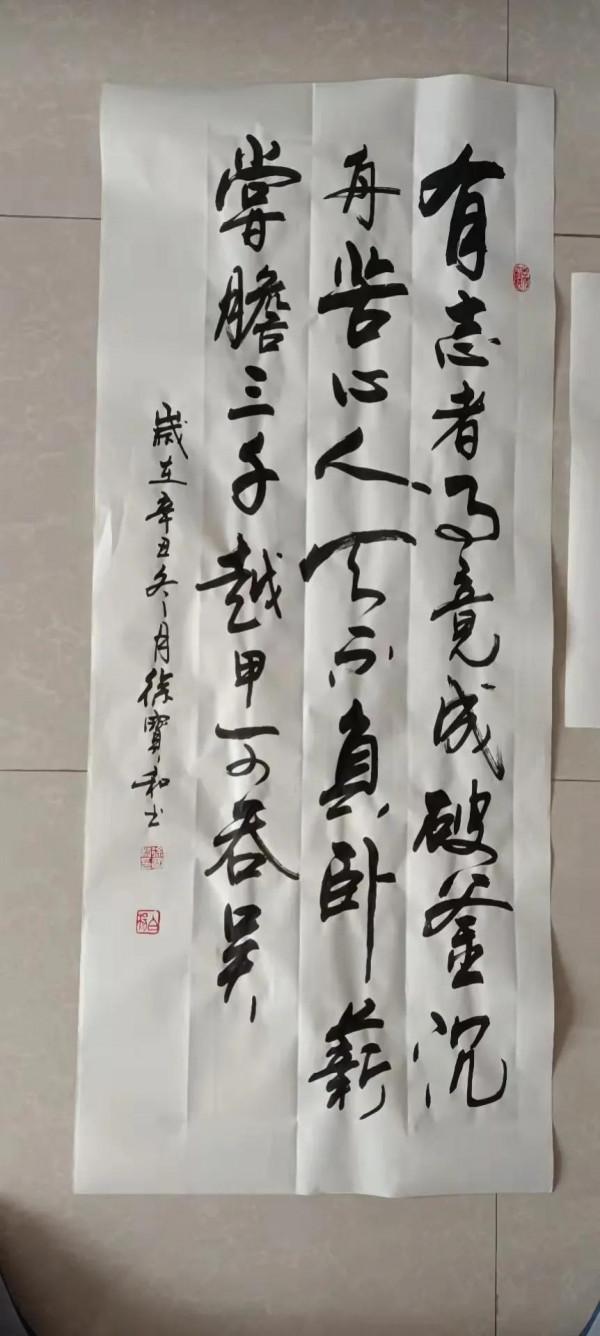 有志者事竟成破釜沉
舟苦心人天不負卧薪
嘗膽三千越甲可吞吴
歲在辛丑冬月徐寶和书